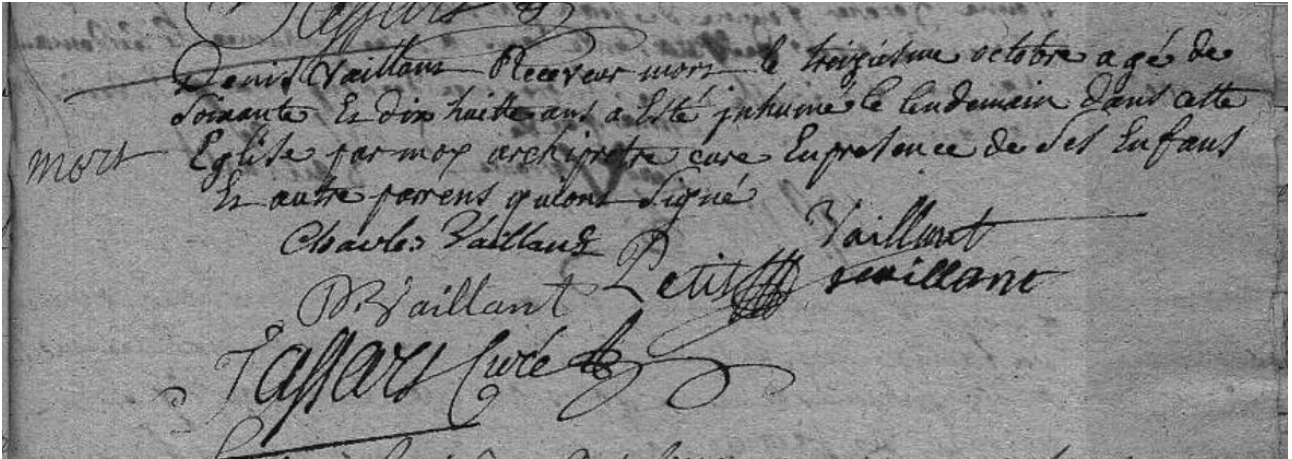 Denis Vaillant Receveur mort le treiziesme octobre agé de
soixante Et dix huitte ans a Esté inhumé le lendemain dans cette
mort
Eglise par moy archipretre curé En presence de ses Enfans
Et autre parrens qui ont signé
Charles Vaillant
Vaillant
Petit
vaillant
D. Vaillant
Curé